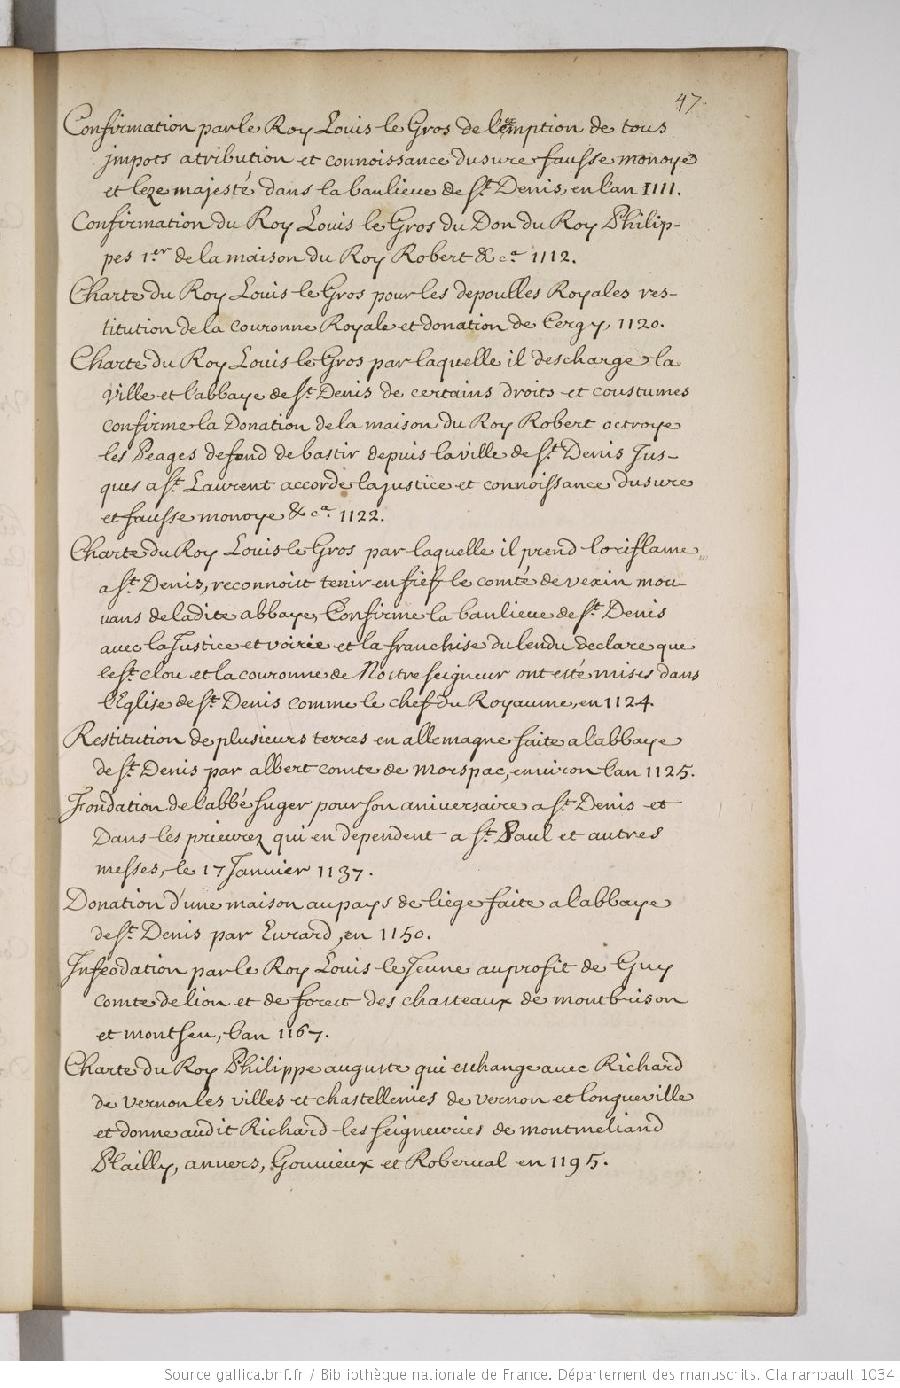 47.
Confirmation par le Roy Louis le Gros de l'exemption de tous
jmpots atribution et connoissance dusure fausse monoye
et leze majesté dans la banlieue de St. Denis, en l'an 1111.
Confirmation du Roy Louis le Gros du Don du Roy Philip-
pes 1er de la maison du Roy Robert &ca 1112.
Charte du Roy Louis le Gros pour les depoulles Royales res-
titution de la couronne Royale et donation de Cergy, 1120.
Charte du Roy Louis le Gros par laquelle il descharge la
Ville et l'abbaye de St. Denis de certains droits et coustumes
confirme la Donation de la maison du Roy Robert octroye
les Peages defend de bastir depuis la ville de St. Denis Jus-
ques a St. Laurent accorde la justice et connoissance dusure
et fausse monoye &ca. 1122.
Charte du Roy Louis le Gros par laquelle il prend loriflame
a St. Denis, reconnoist tenir en fief le comté de vexin mou
vans de ladite abbaye, Confirme la banlieue de St. Denis
avec la Justice et voirie et la franchise du lendu declare que
le St. clou et la couronne de Nostre Seigneur ont esté mises dans
l'Eglise de St. Denis comme le chef du Royaume, en 1124.
Restitution de plusieurs terres en allemagne faite a l'abbaye
de St. Denis par albert comte de Morspac, environ l'an 1125.
Fondation de l'abbé Suger pour son aniversaire a St. Denis et
Dans les prieurez qui en dependent a St. Paul et autres
messes, le 17 Janvier 1137.
Donation d'une maison au pays de liege faite a l'abbaye
de St. Denis par Evrard, en 1150.
Infeodation par le Roy Louis le Jeune au profit de Guy
comte de lion et de forest des chasteaux de montbrison
et montseu, l'an 1167.
Charte du Roy Philippe auguste qui eschange avec Richard
de vernon les villes et chastellenies de vernon et longueville
et donne audit Richard les seigneuries de montmeliand
Plailly, anvers, Gouvieux et Roberval en 1195.
Source gallica.bnf.fr / Bibliothèque nationale de France. Département des manuscrits. Clairambault 1034